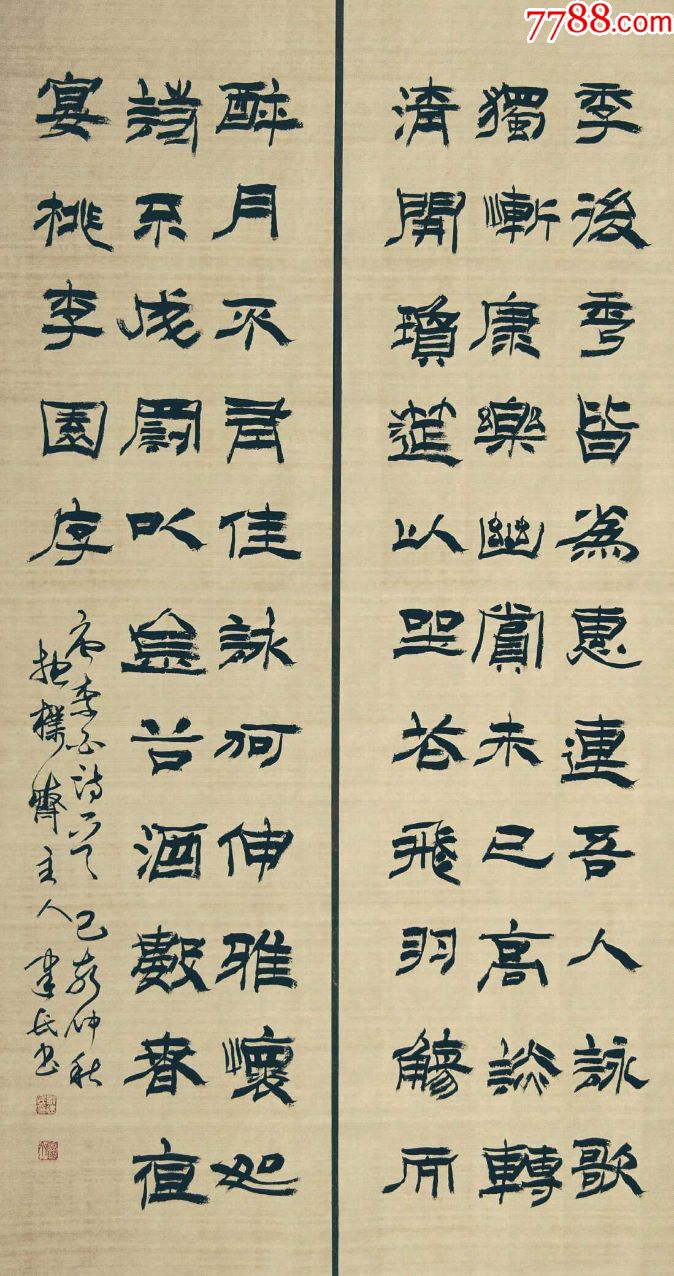 7788.com
季後秀皆為惠連吾人詠歌
獨慚康樂幽賞未已高談轉
清開瓊筵以坐花飛羽觴而
醉月不有佳詠何伸雅懷如
詩不成罰以金谷酒數春夜
宴桃李園序
唐李白詩一首 己亥仲秋
抱樸齋主人建民書